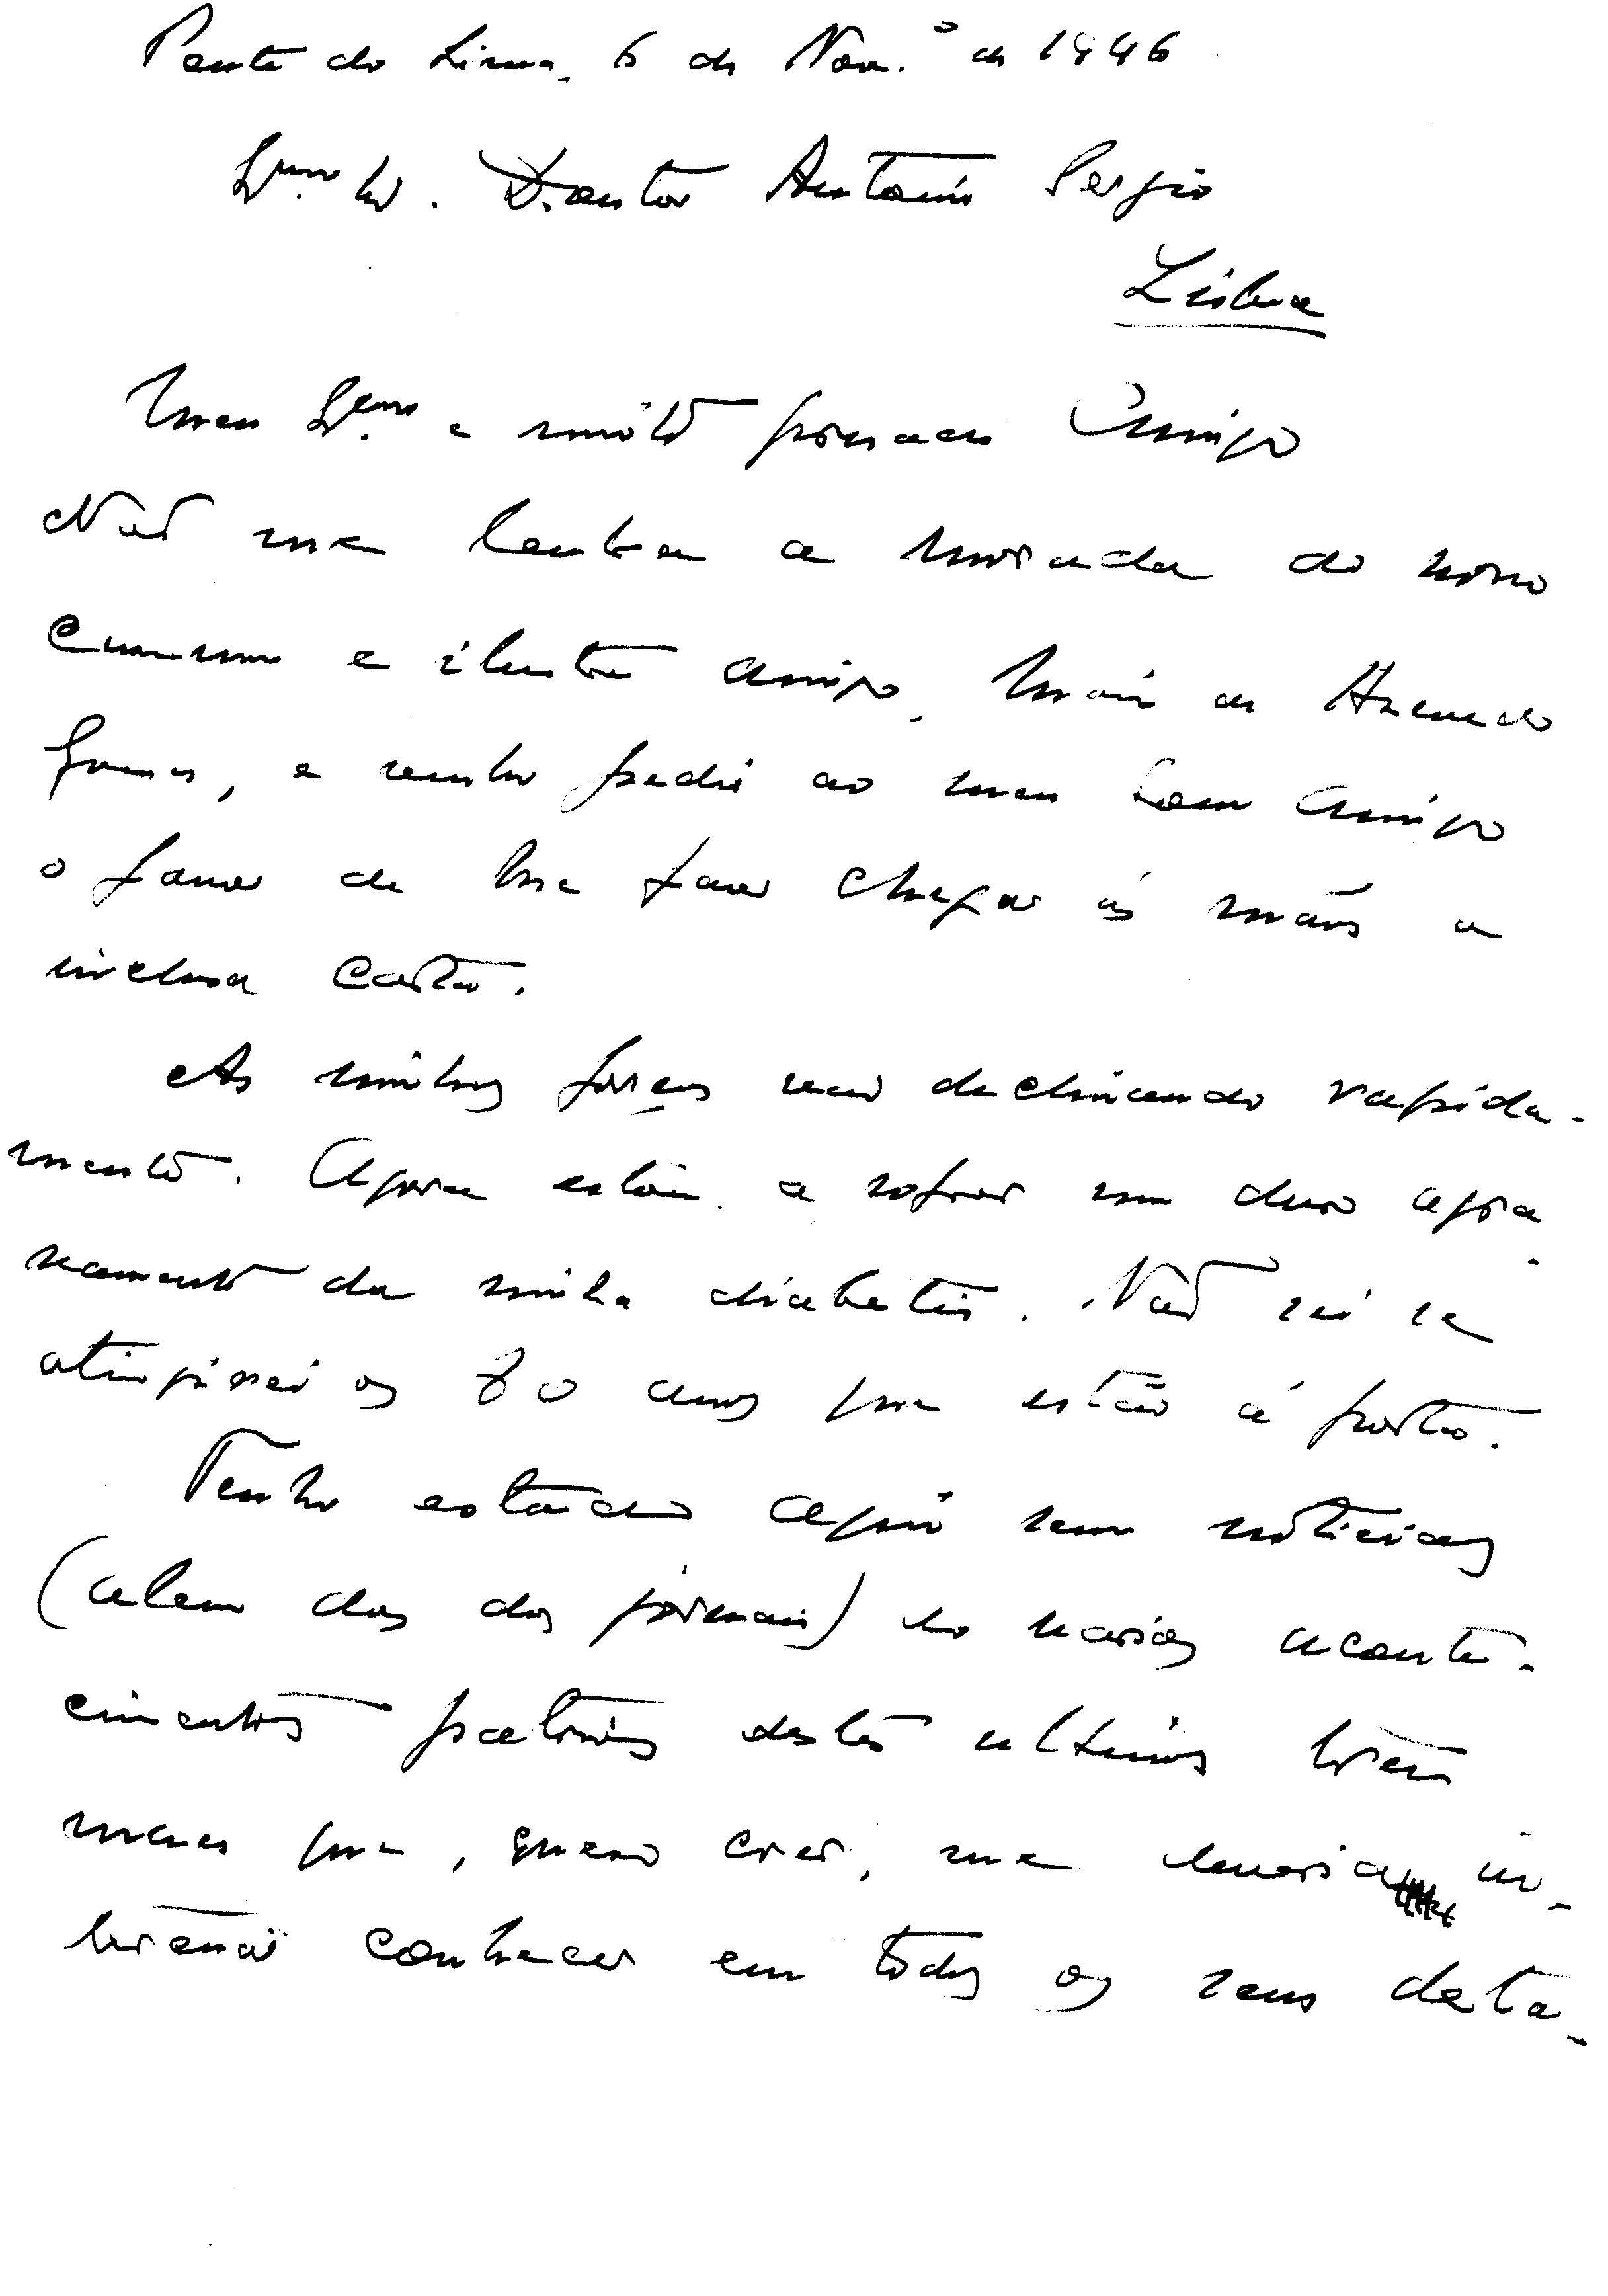 Ponte do Lima, 6 de Nov.º de 1946
Exmo Sr. Doutor Antonio Sergio
Lisboa
Meu Exmo e muito presado Amigo
Não me lembra a morada do nosso
comum e ilustre amigo, Mario de Azevedo
Gomes, e venho pedir ao meu bom amigo
o favor de lhe fazer chegar ás mãos a
inclusa carta.
As minhas forças vão declinando rapida-
mente. Agora estou a sofrer um duro agra-
vamento da minha diabetis. Não sei se
atingirei os 80 anos que estão á porta.
Tenho estado aqui sem noticias
(alem das dos jornais) dos varios aconte-
cimentos patrios destes ultimos três
meses que, quero crer, me deveria in-
teressar conhecer em todos os seus deta-